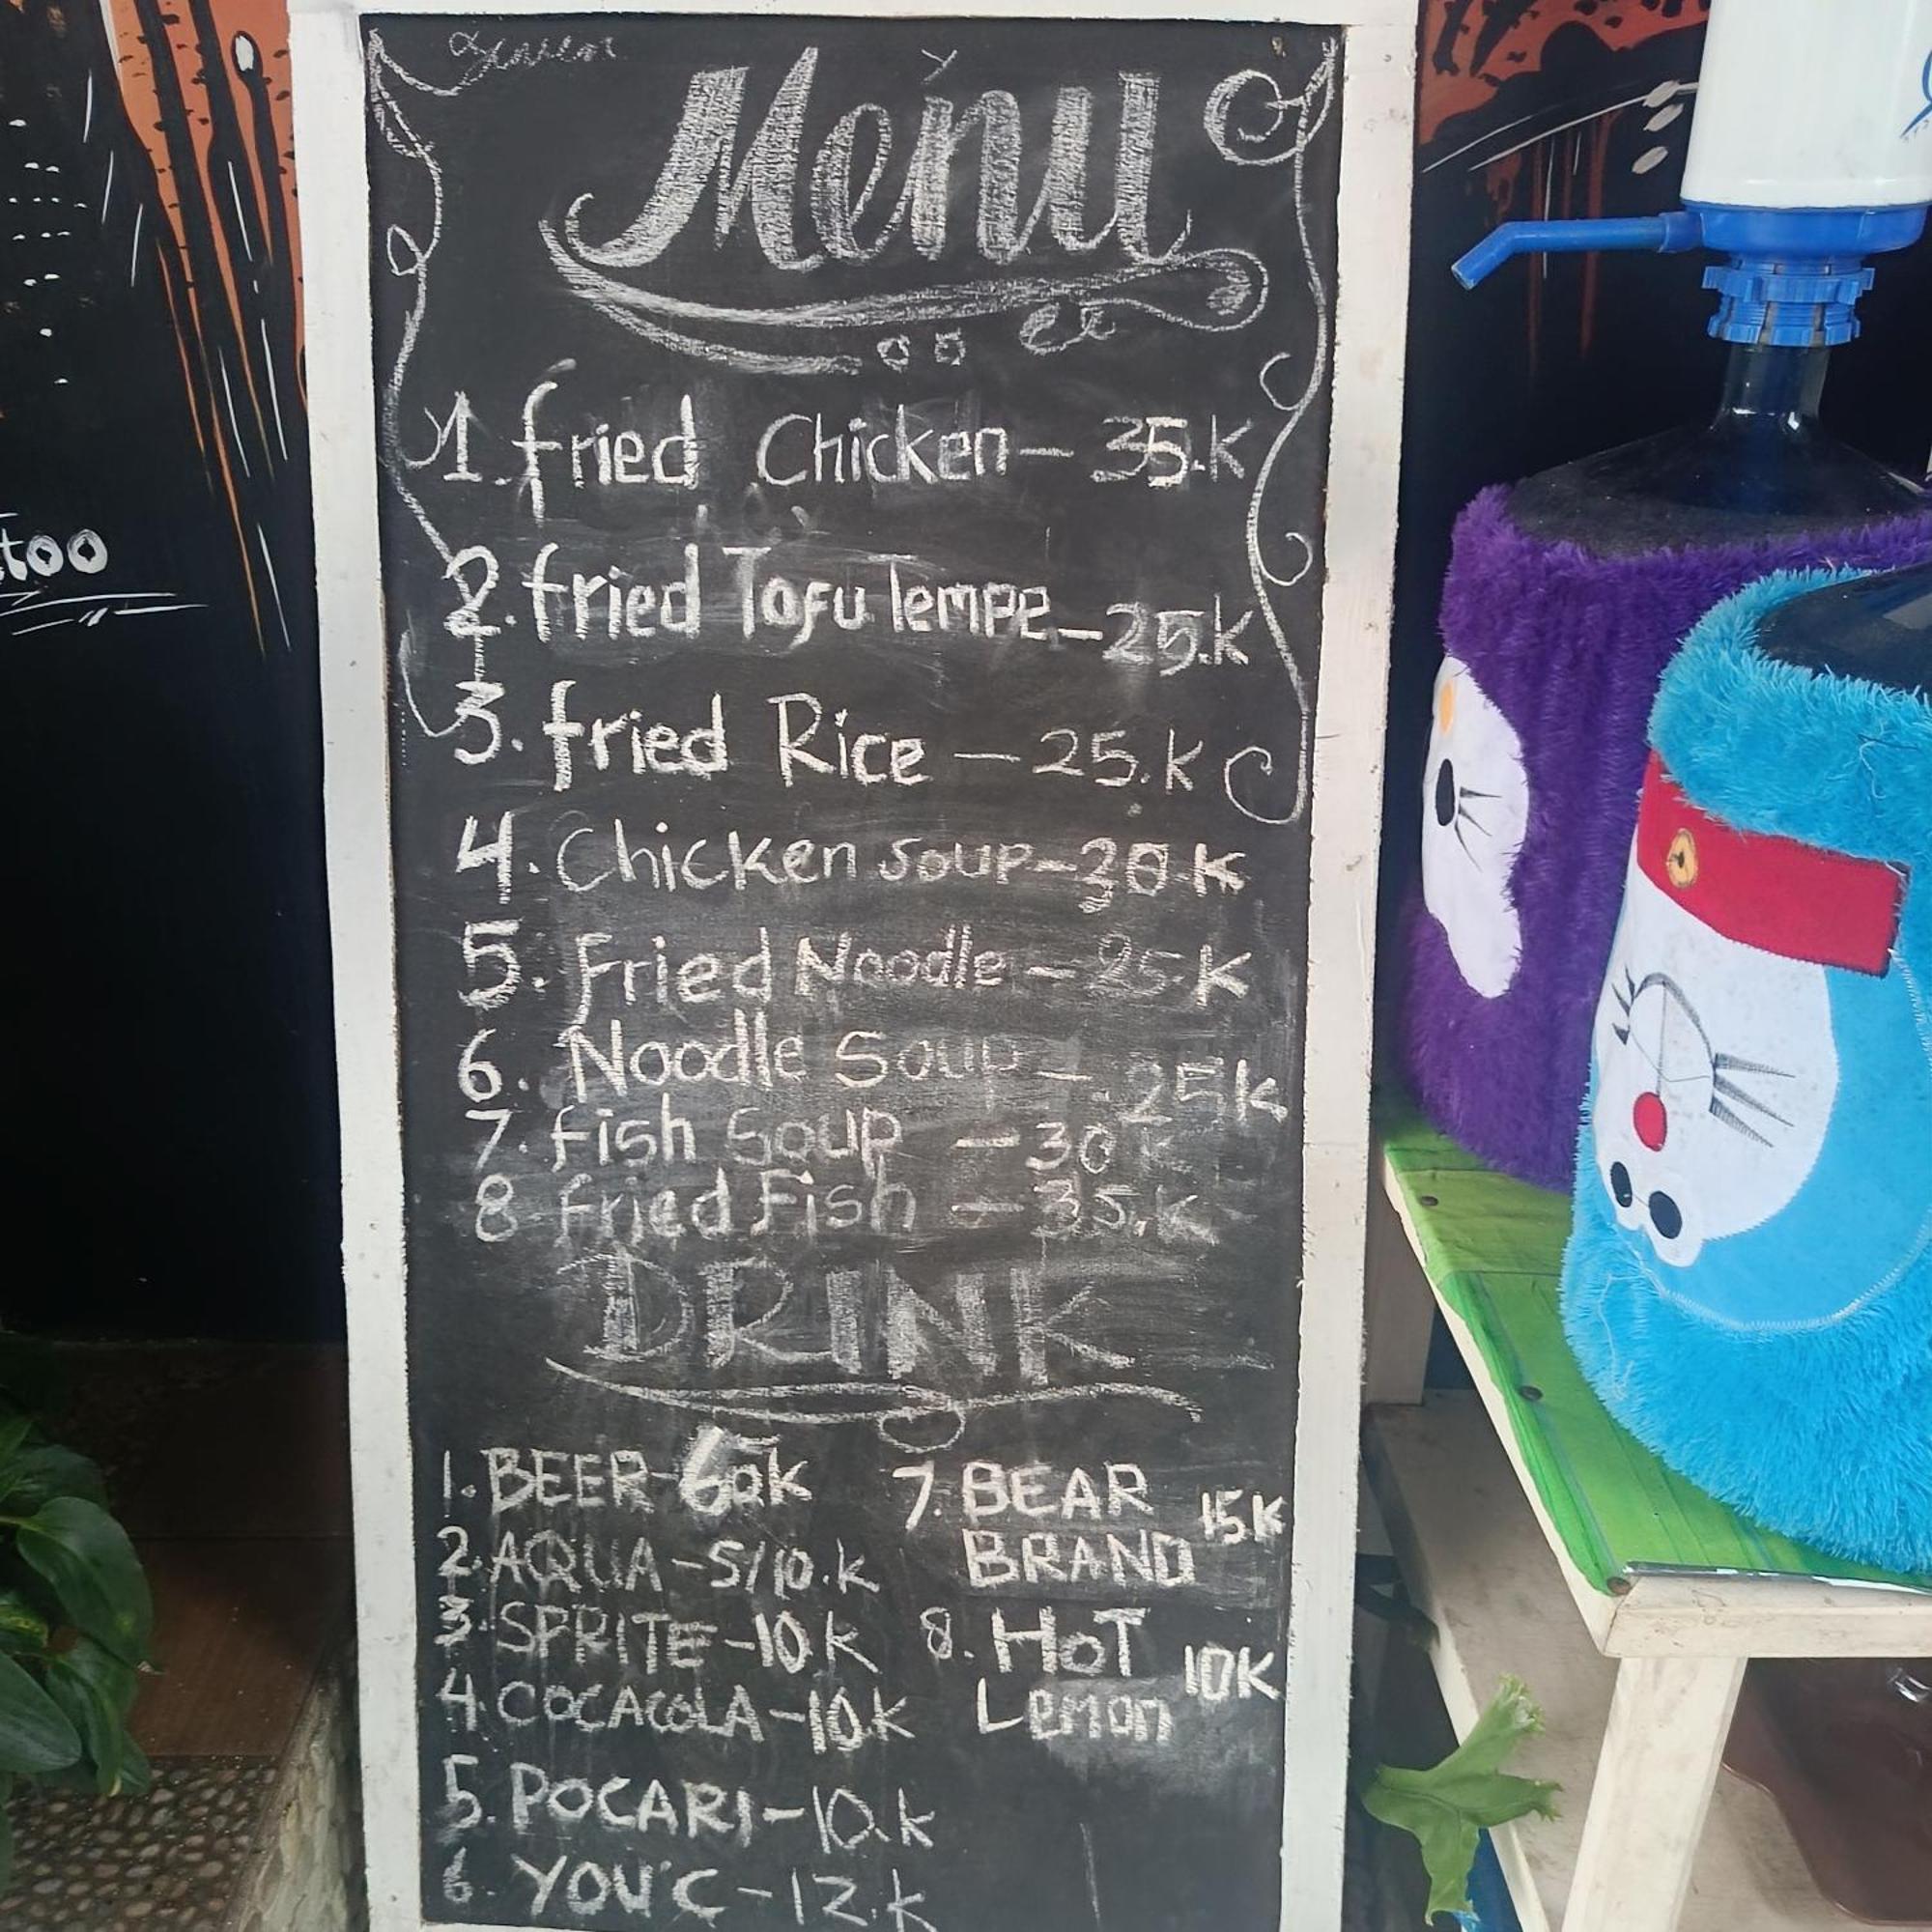 Menu
1. fried Chicken - 35.K
2. fried Tofu Tempe - 25.K
3. fried Rice - 25.K
4. Chicken soup - 30 K
5. Fried Noodle - 25 K
6. Noodle Soup - 25K
7. fish Soup - 30 K
8 fried Fish - 35.K
DRINK
1. BEER - 60K
2. AQUA - 5/10.K
3. SPRITE - 10 K
4. COCACOLA - 10.K
5. POCARI - 10.K
6. YOU'C - 12.K
7. BEAR
BRAND 15K
8. HOT
Lemon 10K
too